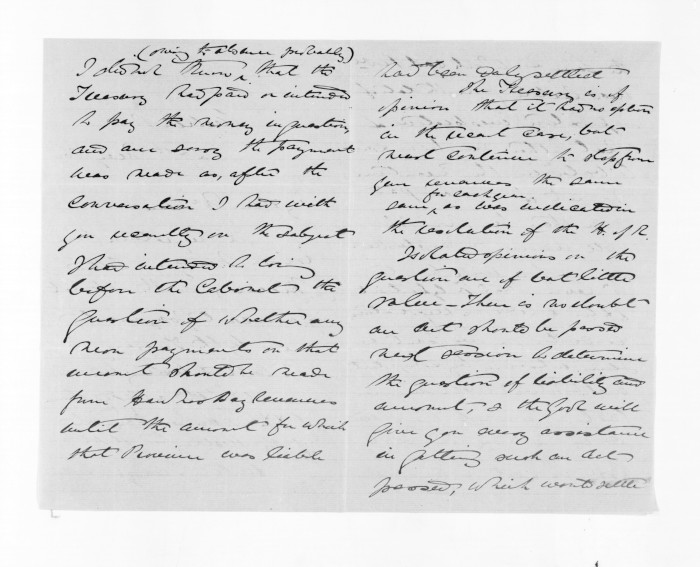 (owing to absence probably)
I did not know, that the
Treasury had paid or intended
to pay the money in question
and am sorry the payment
was made as, after the
conversation I had with
you recently on the subject
I had intended to bring
before the Cabinet the
question of whether any
more payments on that
account should be made
from Hawkes Bay revenues
until the amount for which
that Province was liable
had been duly settled
The Treasury is of
opinion that it had no option
in the recent case, but
must continue to stop from
your revenues the same
for each year
sum, as was indicated in
the resolution of the H. of R.
Isolated opinions on the
question are of but little
value – There is no doubt
an Act should be passed
next session to determine
the question of liability and
amount, & the Govt will
give you every assistance
in getting such an Act
passed, which would settle